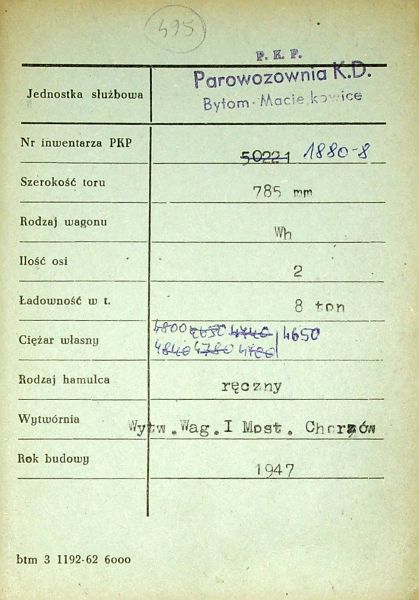 495
P. K. P.
Jednostka służbowa Parowozownia K.D.
Bytom-Maciejkowice
Nr inwentarza PKP 50221 1880-8
Szerokość toru 785 mm
Rodzaj wagonu Wh
Ilość osi 2
Ładowność w t. 8 ton
4800 4650 4740 4650
Ciężar własny 4840 4780 4700
Rodzaj hamulca ręczny
Wytwórnia Wytw.Wag.I Most. Chorzów
Rok budowy 1947
btm 3 1192-62 6000